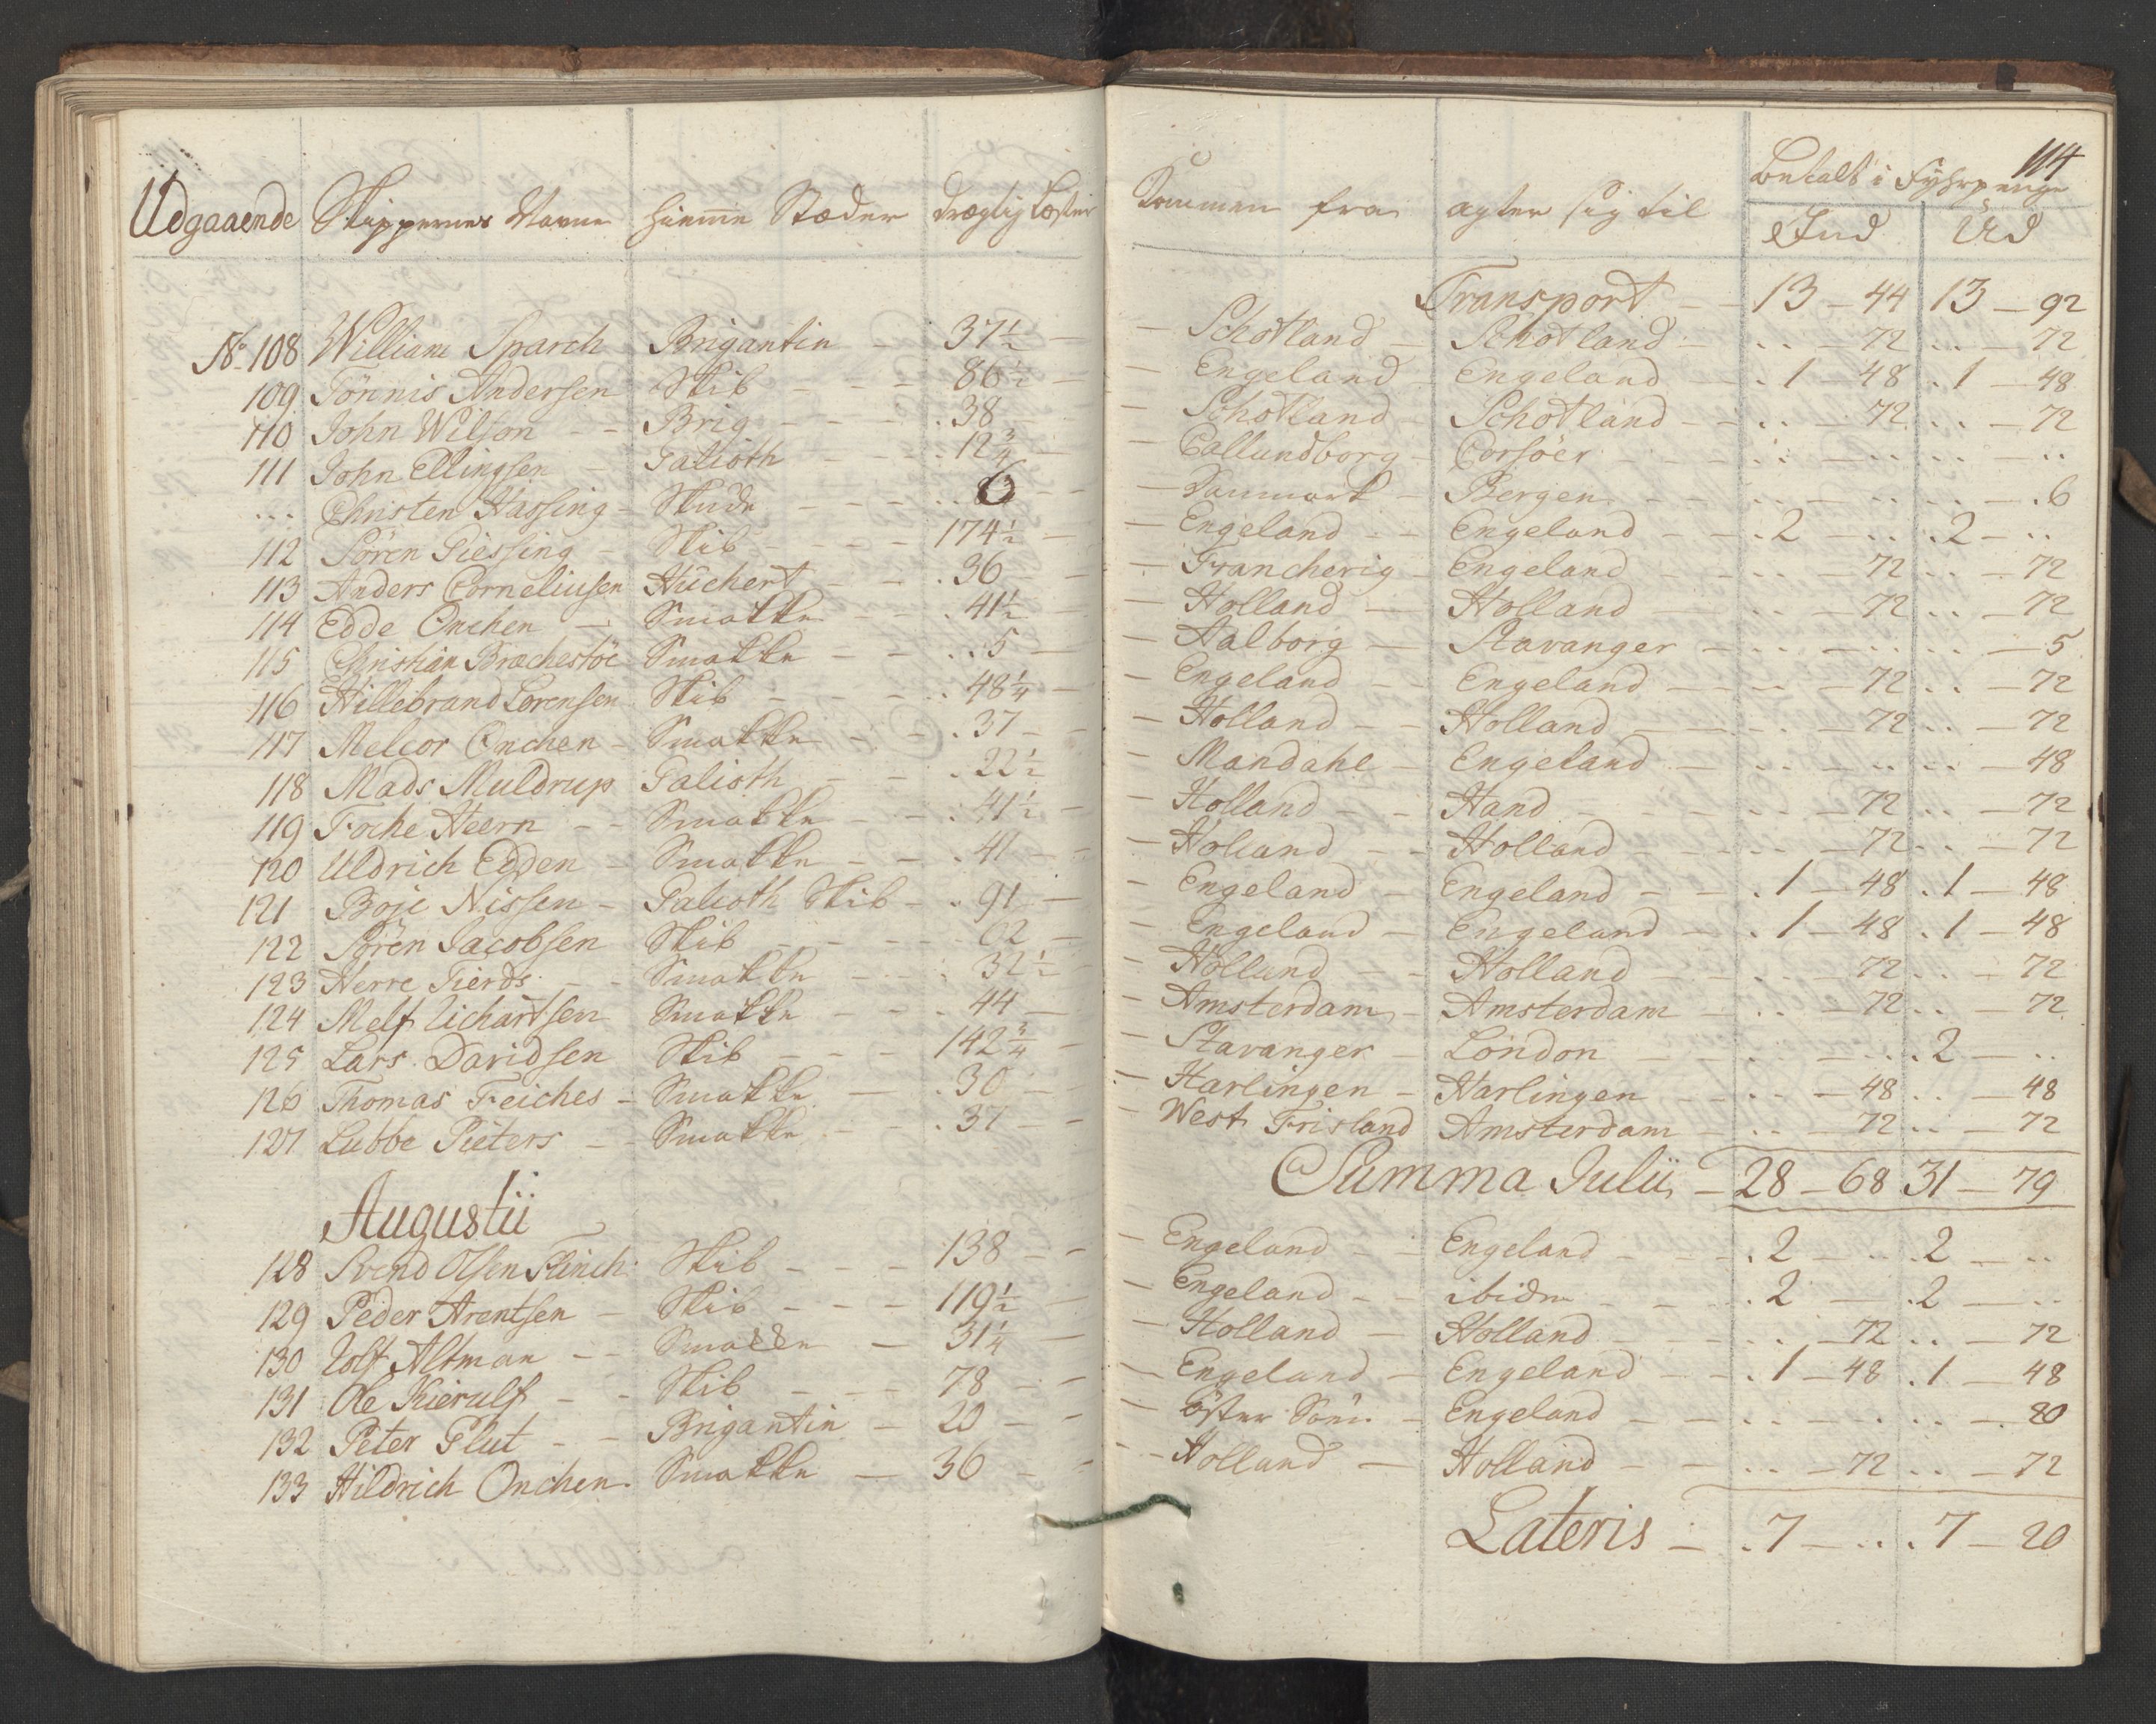 114
Udgaaende Skippernes Navne Hiemme Stæder drægtig Læster Kommen fra agter sig til Betalt i Fyhrpenge
Ind Ud
Transport - 13 - 44 13 - 92
No 108 William Sparch Brigantin - 37 1/2 - Schotland - Schotland - .. - 72 .. - 72
109 Tönnis Andersen Skib - - - 86 1/2 - Engeland Engeland - . 1 - 48 . 1 - 48
110 John Wilson - - Brig - - - . 38 - Schotland - Schotland - .. - 72 .. - 72
111 John Ellingsen - Galioth - - - . 12 3/4 - Callundborg - Corsöer - .. - .. .. - ..
... Christen Hassing - Skude - - - .. 6 - Danmark - Bergen - .. - .. .. - . 6
112 Sören Giessing - Skib - - - 174 1/2 - Engeland - - Engeland - - . 2 - .. . 2 - ..
113 Anders Corneliusen Huchert - - . 36 - Francherig - Engeland - .. - 72 .. - 72
114 Edde Onchen - Smakke - . 41 1/2 - Holland - Holland - .. - 72 .. - 72
115 Christian Brochestöe Smakke - - .. 5 - Aalborg - Stavanger - .. - .. .. - 5
116 Hillebrand Lorensen Skib - - - . 48 1/4 - Engeland - Engeland - .. - 72 .. - 72
117 Melcor Onchen - Smakke - - . 37 - Holland - - Holland - .. - 72 .. - 72
118 Mads Muldrup Galioth - - . 22 1/2 - Mandahl - Engeland - .. - .. .. - 48
119 Foche Heern - - Smakke - - . 41 1/2 - Holland - - Hand - .. - 72 .. - 72
120 Uldrich Edden - Smakke - - . 41 - Holland - - Holland - .. - 72 .. - 72
121 Boje Nissen - Galioth Skib - . 91 - Engeland - Engeland - - . 1 - 48 . 1 - 48
122 Sören Jacobsen Skib - - - 62 - Engeland - Engeland - . 1 - 48 . 1 - 48
123 Herre Tierds - Smakke - - . 32 1/2 - Holland - - Holland - .. - 72 .. - 72
124 Melf Richartsen Smakke - - . 44 - Amsterdam - Amsterdam - .. - 72 .. - 72
125 Lars Davidsen Skib - - - 142 3/4 - Stavanger - London - .. - .. . 2 - ..
126 Thomas Feiches - Smakke - . 30 - Harlingen - Harlingen - .. - 48 .. - 48
127 Lubbe Pieters - Smakke - - . 37 - West Frisland Amsterdam - .. - 72 .. - 72
Summa Julii - 28 - 68 31 - 79
Augustii
128 Svend Olsen Flinch Skib - - - 138 - - Engeland - - Engeland - - . 2 - .. . 2 - ..
129 Peder Arentsen - Skib - - - 119 1/2 - Engeland - - ibidm - - . 2 - . 2 - ..
130 Rolf Altman - - Smakke - 31 1/4 - Holland - Holland - .. - 72 .. - 72
131 Ole Kierulf - - Skib - - - 78 - - Engeland - Engeland - - . 1 - 48 . 1 - 48
132 Peter Plut - - Brigantin - 20 - - Öster Söen - Engeland - - .. - .. .. - 20
133 Hildrich Onchen Smakke - 36 - - Holland - Holland - - .. - 72 .. - 72
Lateris - . 7 - .. . 7 - 20